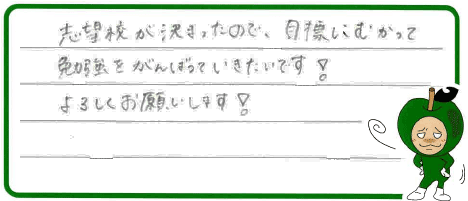 志望校が決まったので、目標にむかって
勉強をがんばっていきたいです！
よろしくお願いします！